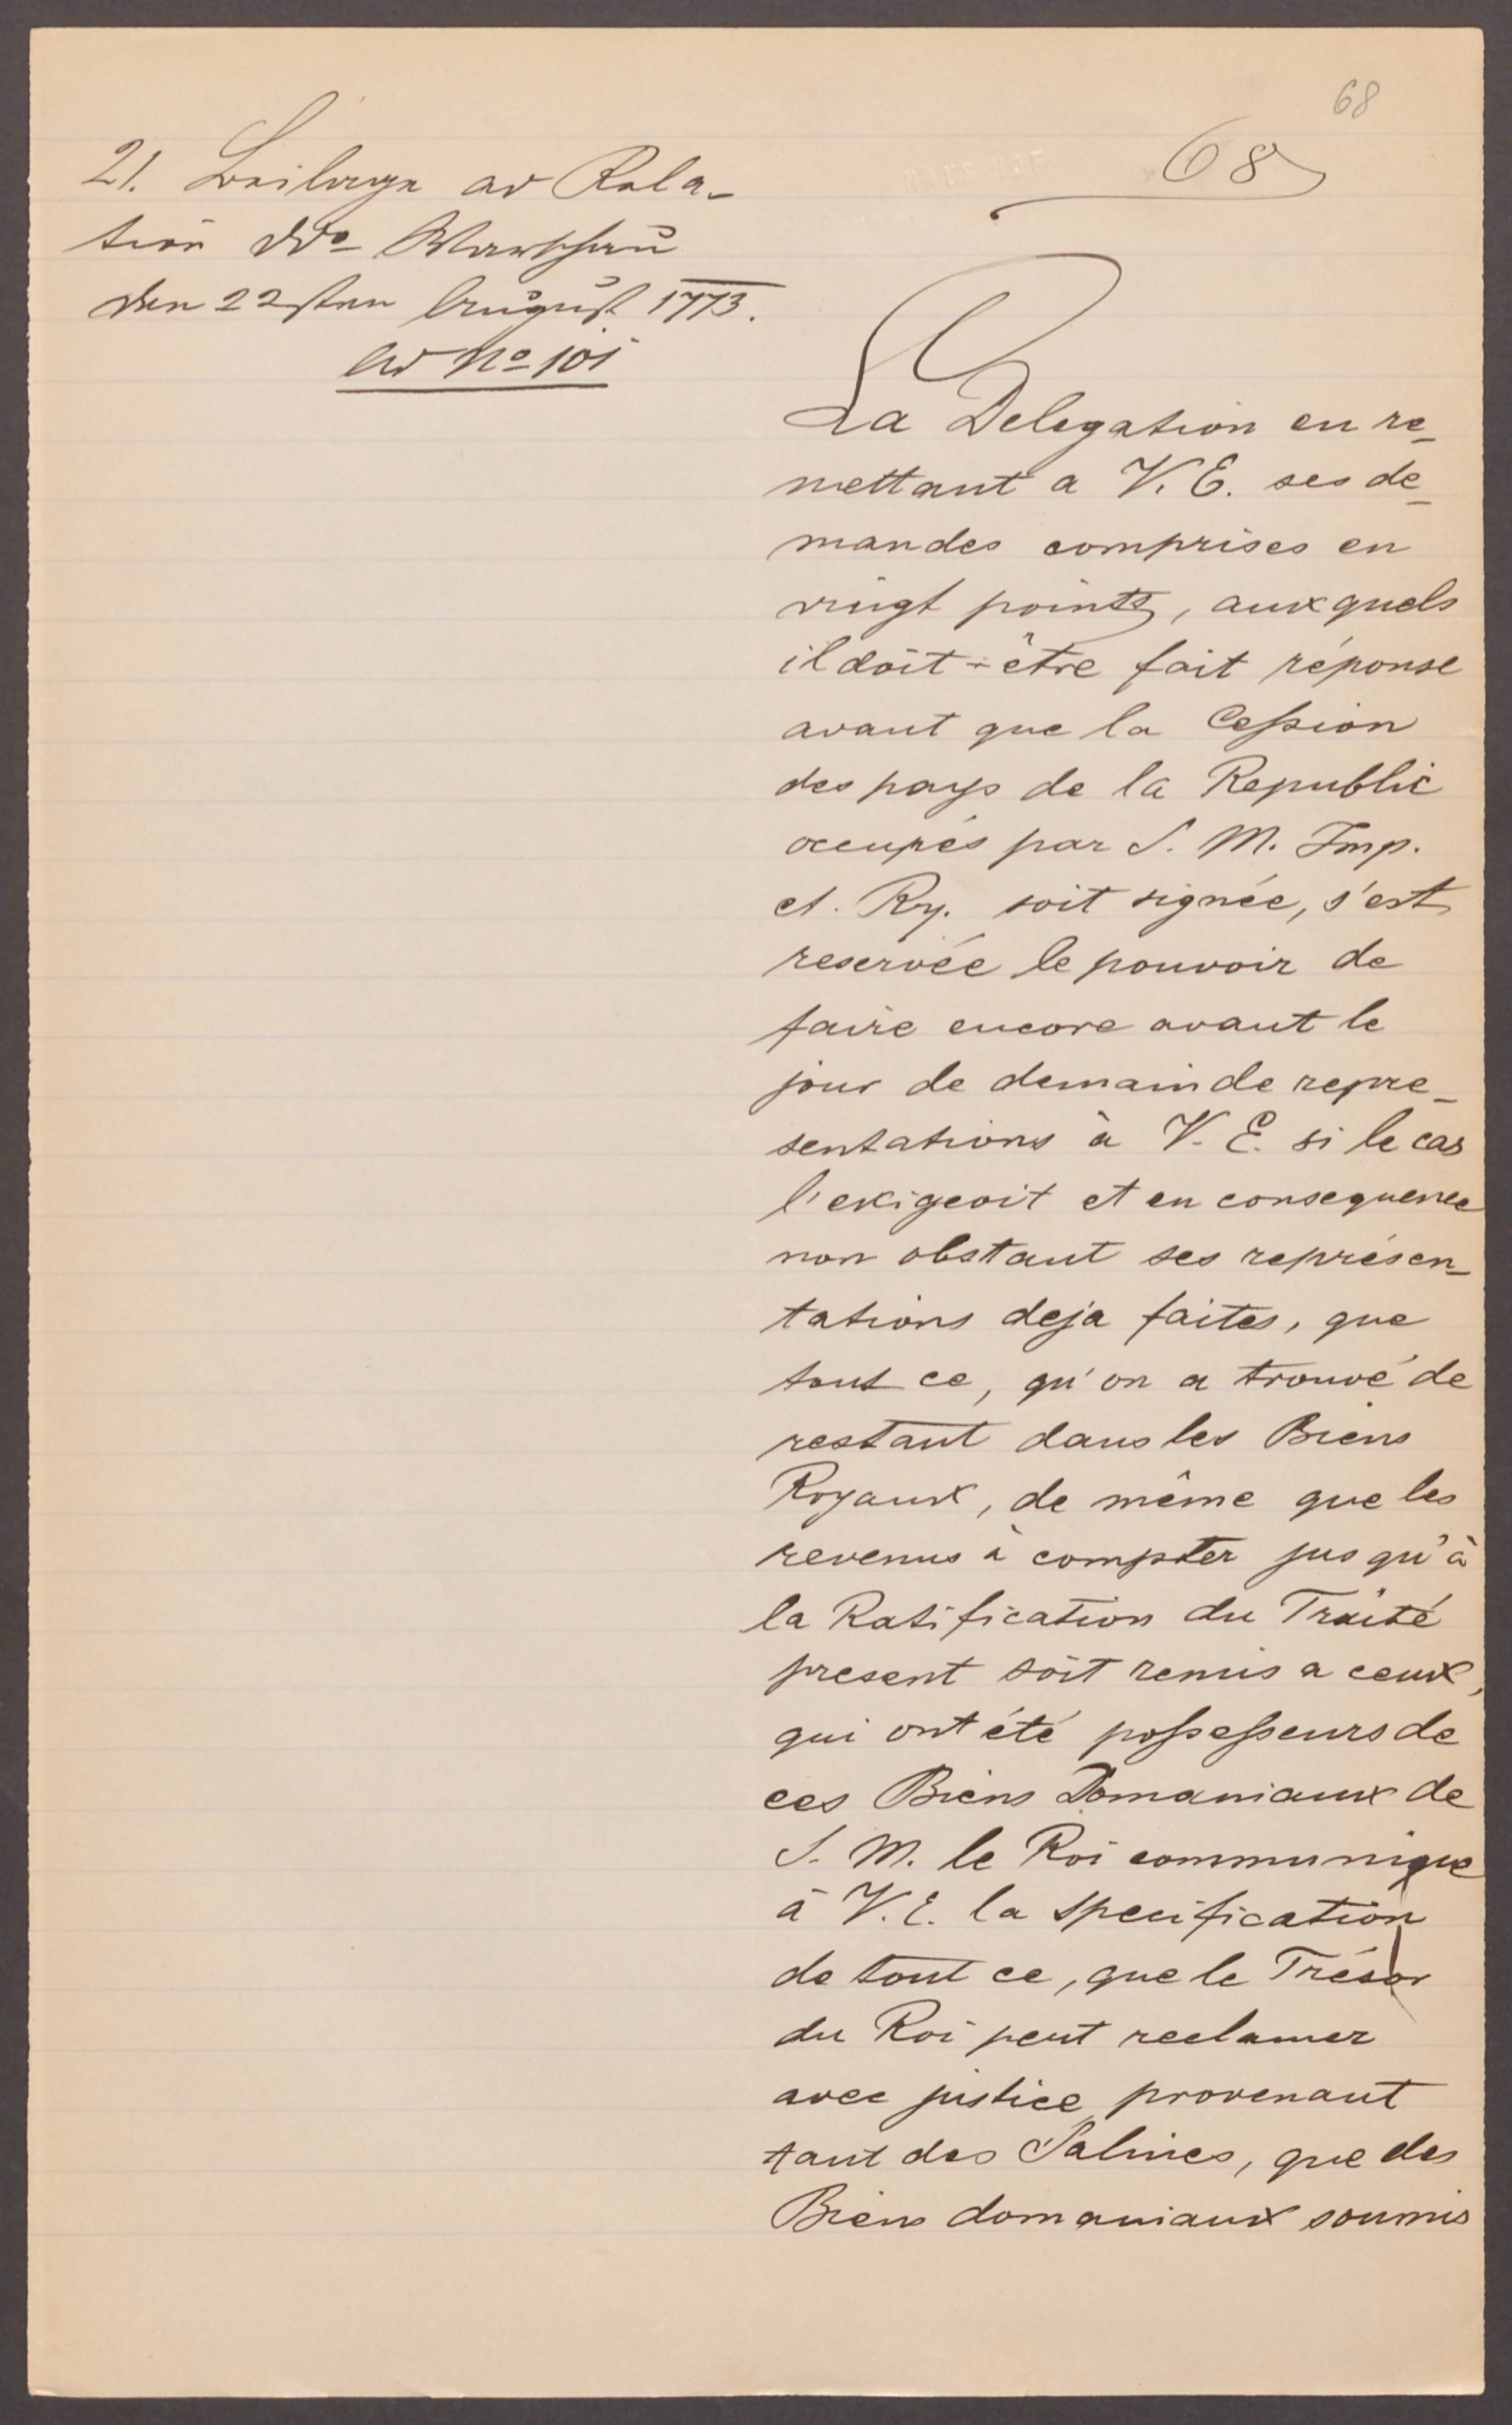 68
68
21. Beilage ad Rela-
tion Ddo Warschau
den 22sten August 1773.
ad No 101
La Delegation en re-
mettant a V. E. ses de-
mandes comprises en
vingt points, auxquels
il doit-être fait réponse
avant que la Cession
des pays de la Republic
occupés par S. M. Imp.
et. Ry. soit signée, s'est
reservée le pouvoir de
faire encore avant le
jour de demain de repre-
sentations à V. E. si le cas
l'exigeoit et en consequence
non obstant ses représen-
tations deja faites, que
tout ce, qu'on a trouvé de
restant dans les Biens
Royaux, de même que les
revenus à compter jusqu'à
la Ratification du Traité
present soit remis a ceux,
qui ont été possesseurs de
ces Biens Domaniaux de
S. M. le Roi communique
à V. E. la specification
de tout ce, que le Trésor
du Roi peut reclamer
avec justice provenant
tant des Salines, que des
Biens domaniaux soumis